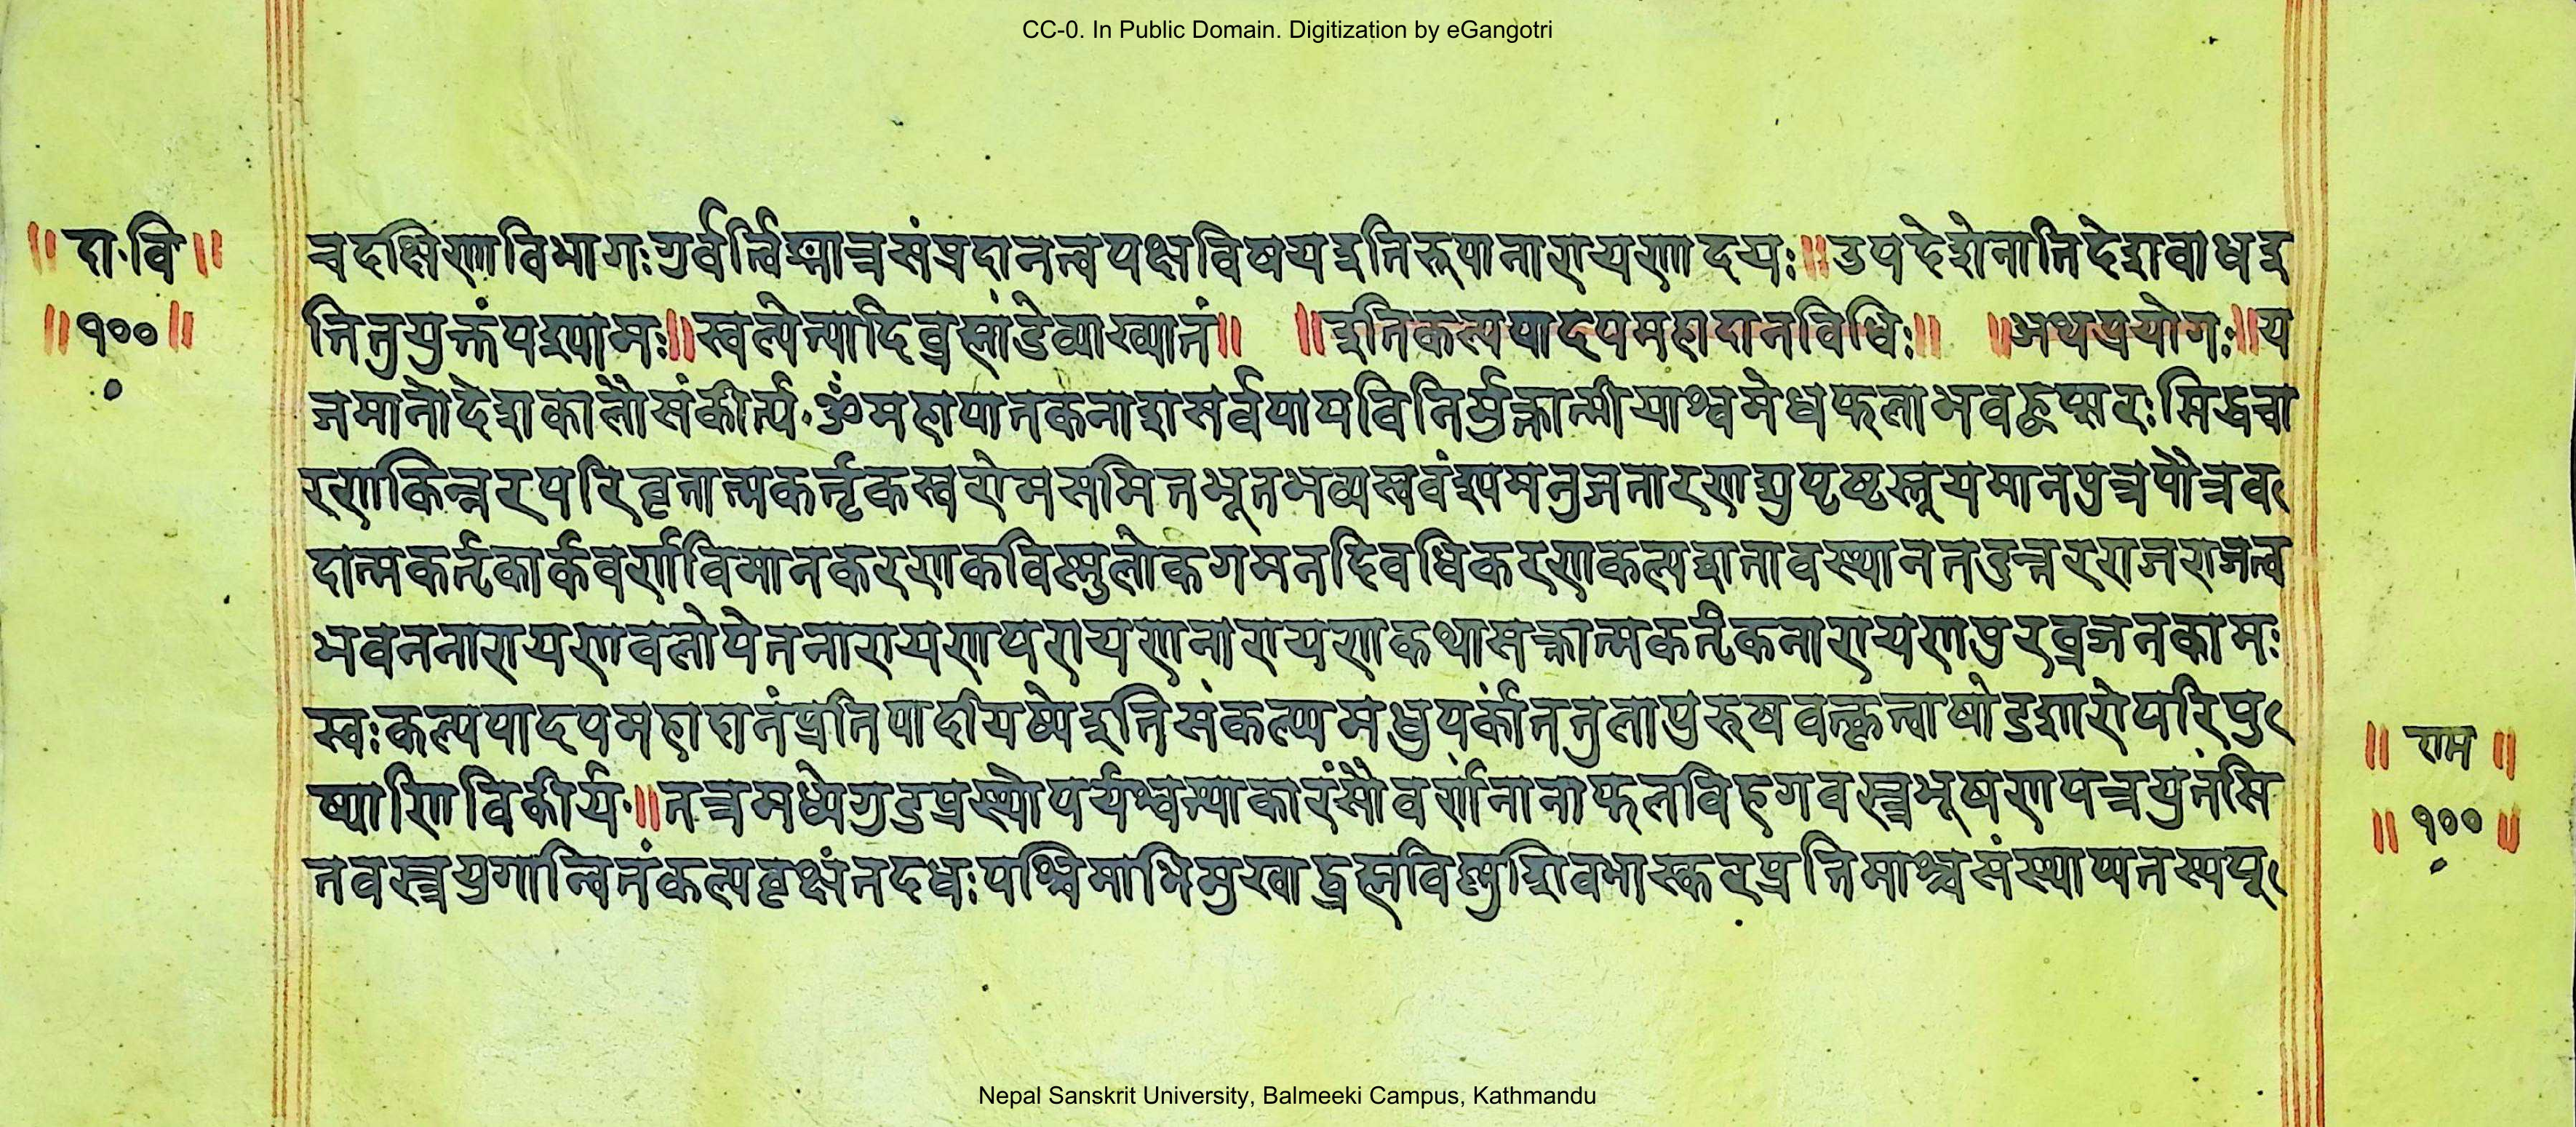 CC-0. In Public Domain. Digitization by eGangotri
॥ दा·वि ॥
॥ १०० ॥
चदक्षिणाविभागःगुर्वर्त्विग्मात्रसंप्रदानत्वपक्षविषयइतिरूपानारायणादयः॥उपदेशेनातिदेशवाधइ
तितुयुक्तंपश्यामः॥स्वल्पेत्यादिब्रह्मांडेव्याख्यातं॥ ॥इतिकल्पपादपमहादानविधिः॥ ॥अथप्रयोगः॥य
जमानोदेशकालौसंकीर्त्य·ॐमहापातकनाशसर्वपापविनिर्मुक्तात्मीयाश्वमेधफलाभवहुप्सरःसिद्धचा
रणकिन्नरपरिवृतात्मकर्त्तृकस्वरोमसमितभूतभव्यस्ववंश्यमनुजतारणद्युपृष्टस्तूयमानपुत्रपौत्रव
दात्मकर्तृकार्कवर्णविमानकरणकविष्णुलोकगमनदिवधिकरणकल्पशतावस्थानतदुत्तरराजराजत्व
भवननारायणवलोपेतनारायणपरायणनारायणकथासक्तात्मकर्तृकनारायणपुरव्रजनकामः
स्वःकल्पपादपमहादानंप्रतिपादयिष्येइतिसंकल्प्यमधुपर्कांतंतुलापुरुषवत्कृत्वाषोडशारोपरिपु
ष्पाणिविकीर्य·॥तत्रमध्येगुडप्रस्थोपर्यश्वत्थाकारंसौवर्णंनानाफलविहगवस्त्रभूषणपत्रयुतंसि
तवस्त्रयुगान्वितंकल्पवृक्षंतदधःपश्चिमाभिमुखाद्ब्रह्मविष्णुशिवभास्करप्रतिमाश्चसंस्थाप्यतस्यपू
॥ राम ॥
॥ १०० ॥
Nepal Sanskrit University, Balmeeki Campus, Kathmandu